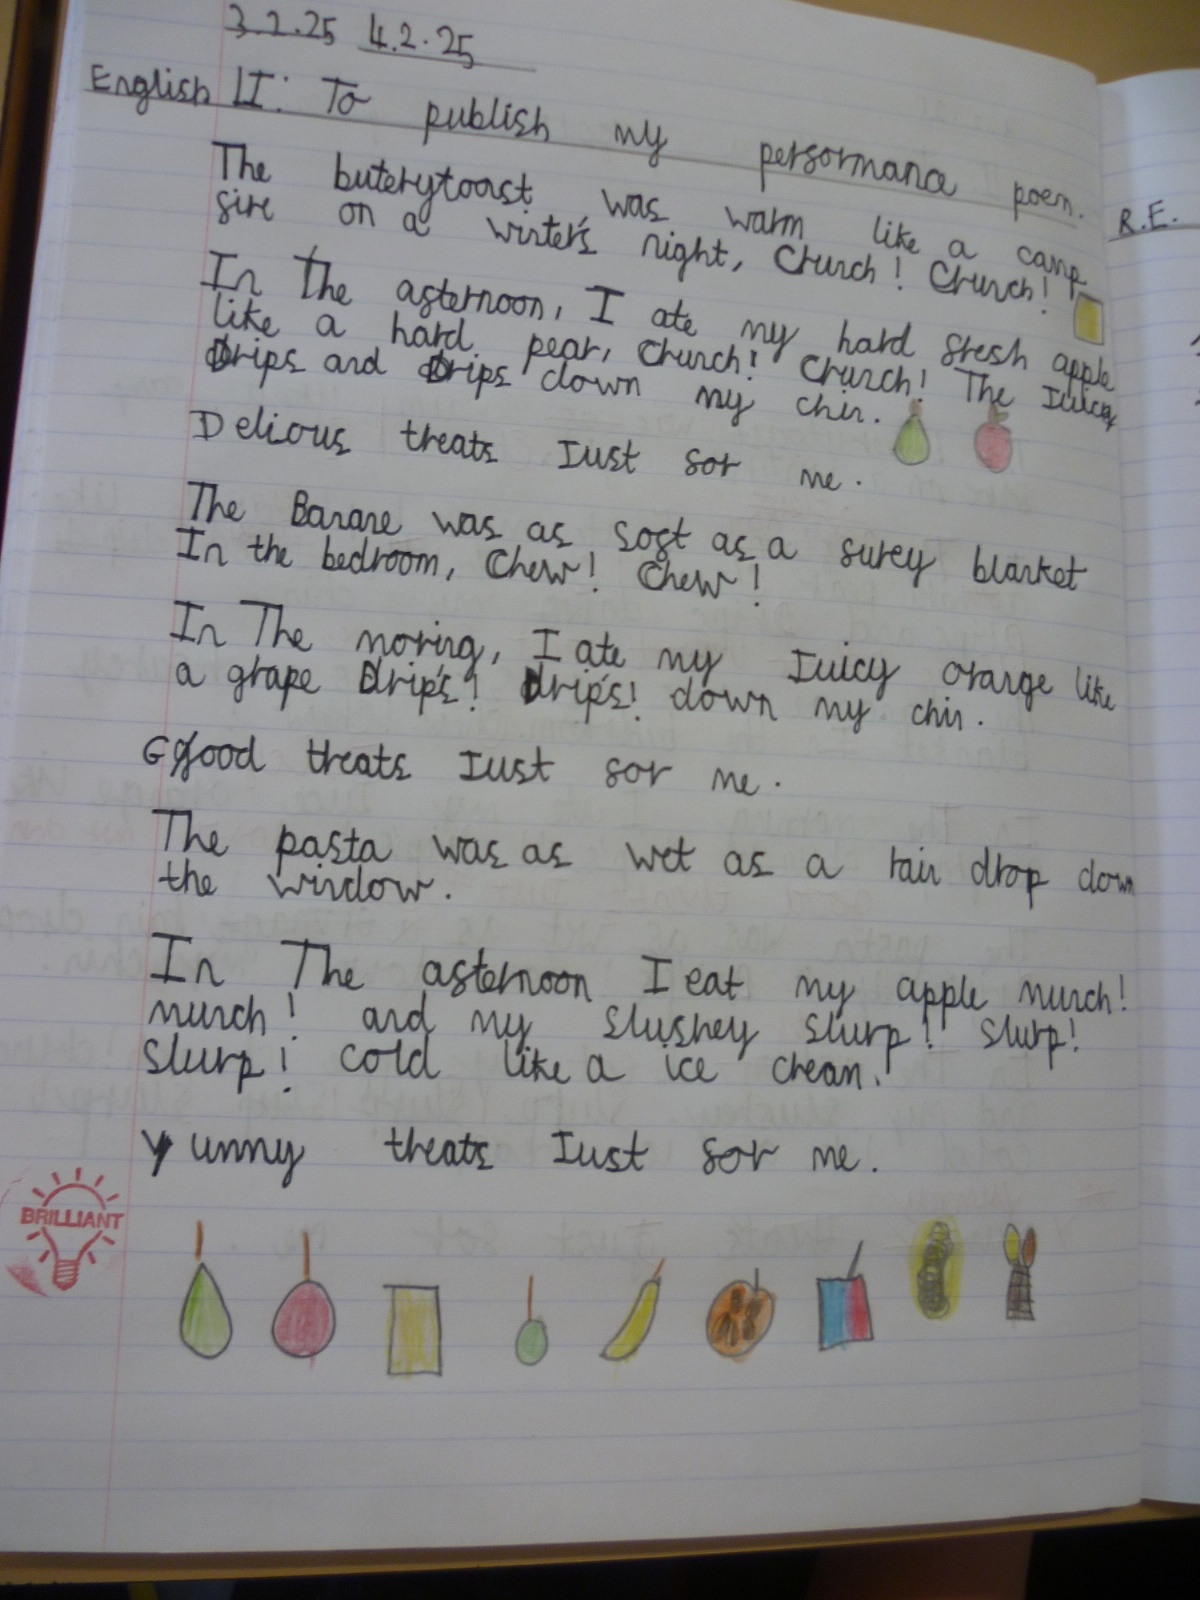 3.2.25 4.2.25
English LI: To publish my performance poem.
The buterytoast was warm like a camp
fire on a winter's night, Crunch! Crunch!
In The afternoon, I ate my hard fresh apple
like a hard pear, Crunch! Crunch! The Juicey
Drips and Drips down my chin.
Delious treats Just for me.
The Banane was as soft as a furey blanket
In the bedroom, Chew! Chew!
In The moring, I ate my Juicy orange like
a grape Drip's! Drip's! down my chin.
Good treats Just for me.
The pasta was as wet as a rain drop down
the window.
In The afternoon I eat my apple munch!
munch! and my slushey slurp! slurp!
slurp! cold like a ice cream.
Yummy treats Just for me.
BRILLIANT
R.E.